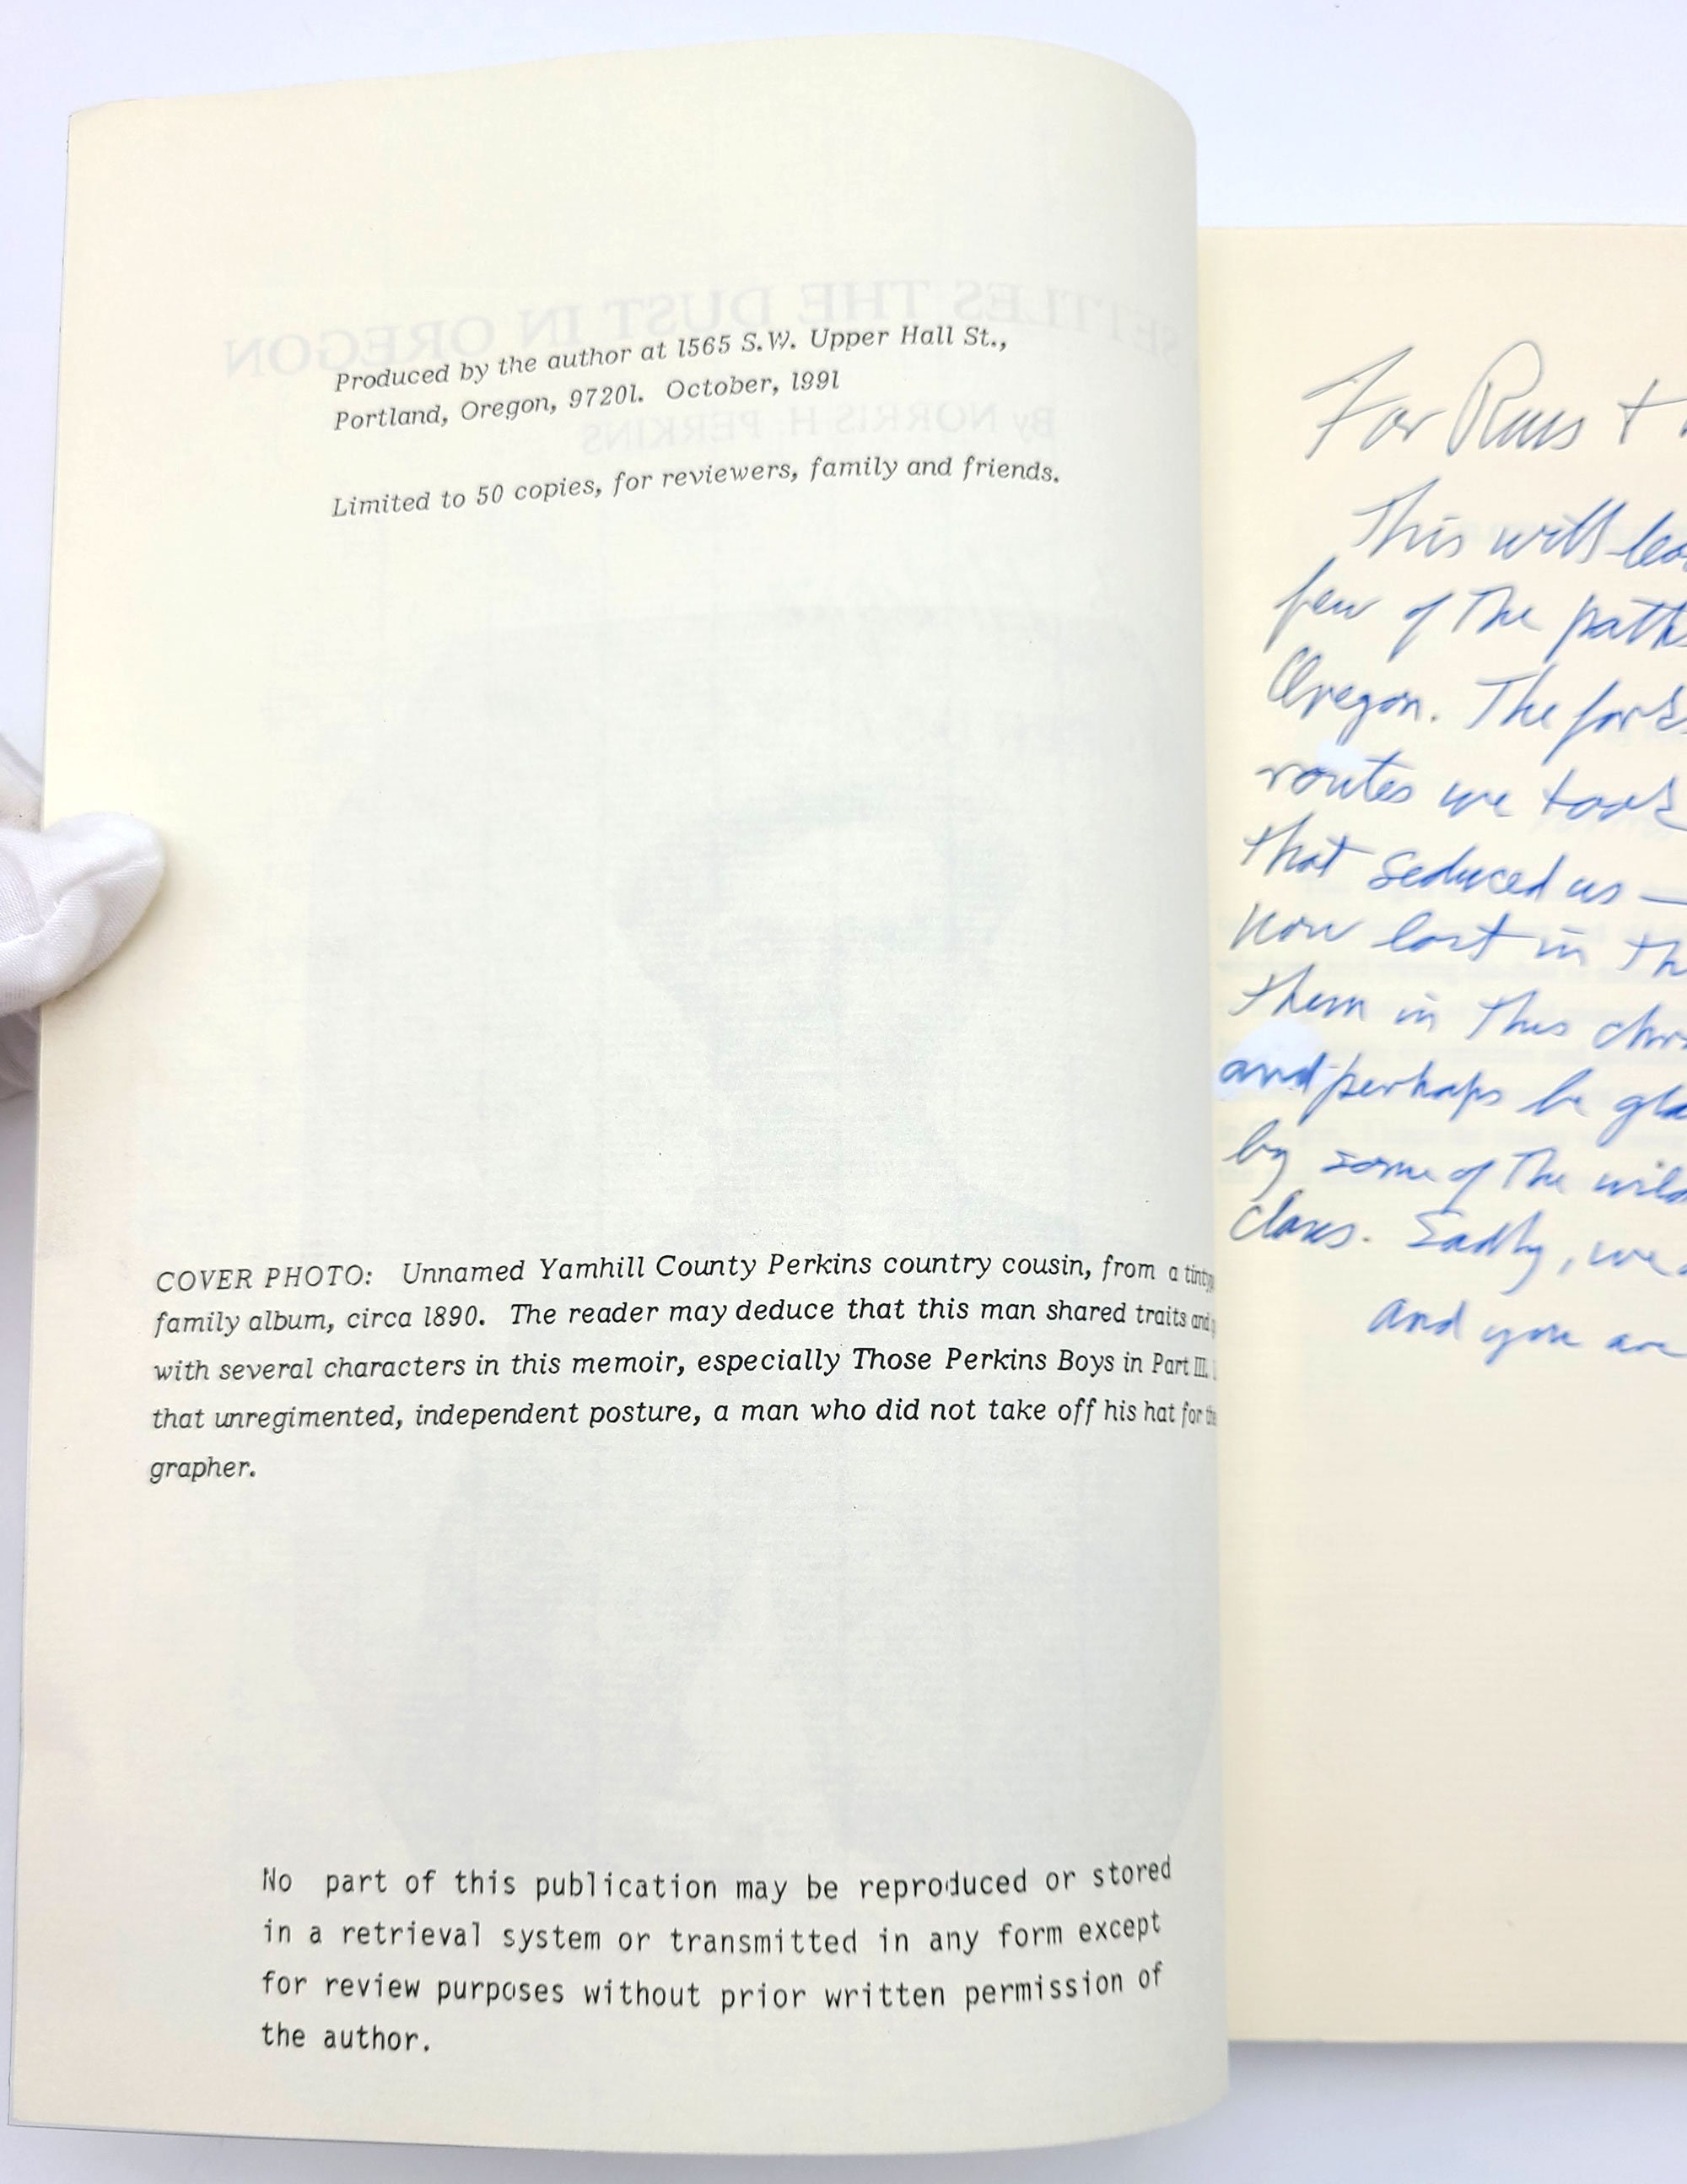 SETTLES THE DUST IN OREGON
By NORRIS H. PERKINS
Produced by the author at 1565 S.W. Upper Hall St.,
Portland, Oregon, 97201. October, 1991
Limited to 50 copies, for reviewers, family and friends.
COVER PHOTO: Unnamed Yamhill County Perkins country cousin, from a
family album, circa 1890. The reader may deduce that this man shared traits and
with several characters in this memoir, especially Those Perkins Boys in Part III.
that unregimented, independent posture, a man who did not take off his hat for
grapher.
No part of this publication may be reproduced or stored
in a retrieval system or transmitted in any form except
for review purposes without prior written permission of
the author.
For Russ +
This will
few of the paths
Oregon. The forks
routes we took
that seduced us —
now lost in
them in this
and perhaps be
by some of the
clans. Sadly, we
and you are